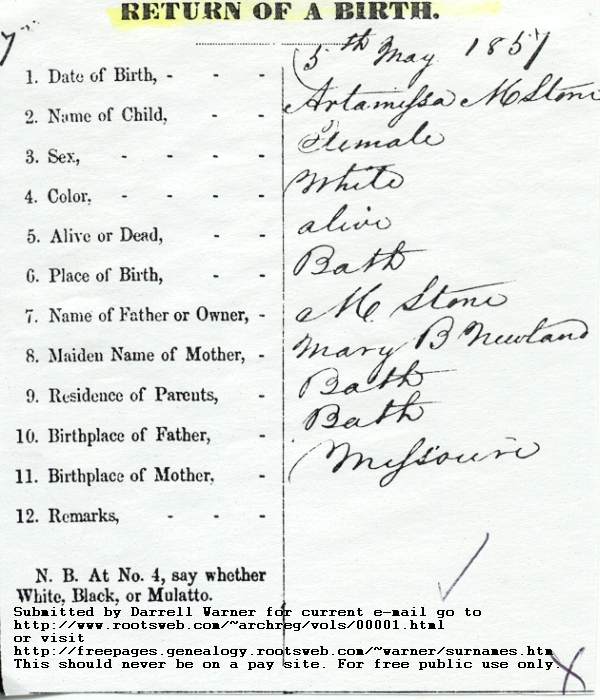 RETURN OF A BIRTH.
7
1. Date of Birth, - - - 5th May 1857
2. Name of Child, - - Artamissa M Stone
3. Sex, - - - - Female
4. Color, - - - - White
5. Alive or Dead, - - alive
6. Place of Birth, - - Bath
7. Name of Father or Owner, - M. Stone
8. Maiden Name of Mother, - Mary B Newland
9. Residence of Parents, - Bath
10. Birthplace of Father, - Bath
11. Birthplace of Mother, - Missouri
12. Remarks, - - -
N. B. At No. 4, say whether
White, Black, or Mulatto.
Submitted by Darrell Warner for current e-mail go to
http://www.rootsweb.com/~archreg/vols/00001.html
or visit
http://freepages.genealogy.rootsweb.com/~warner/surnames.htm
This should never be on a pay site. For free public use only.